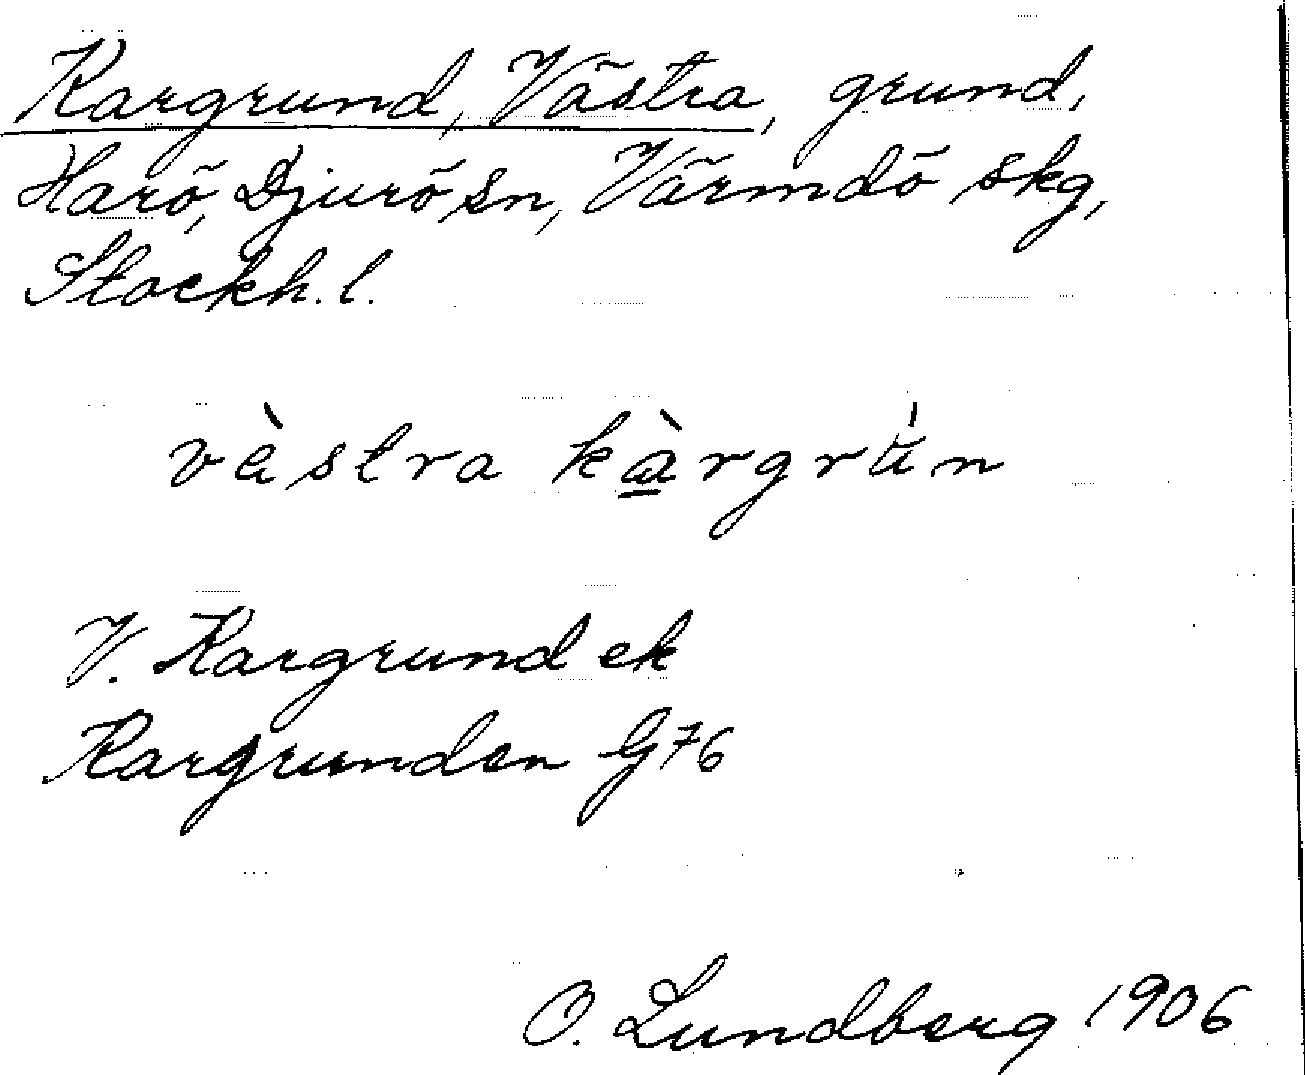 Kargrund, Västra, grund,
Harö, Djurö sn, Värmdö skg,
Stockh. l.
vὲstra kàrgrún
V. Kargrund ek
Kargrunden G76
O. Lundberg 1906